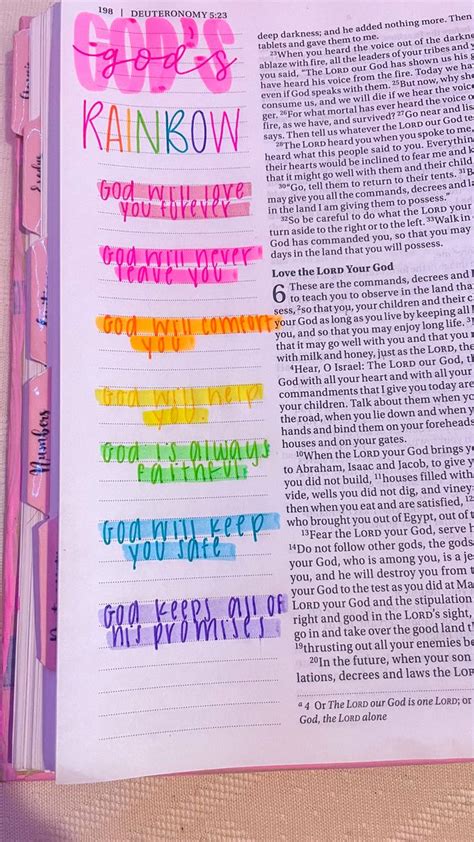 198 | DEUTERONOMY 5:23
GOD'S
god's
RAINBOW
God will love
you forever
God will never
leave you
God will comfort
you
God will help
you
God is always
faithful
God will keep
you safe
God keeps all of
his promises
Numbers
deep darkness; and he added nothing more. Then
tablets and gave them to me.
23When you heard the voice out of the darkness
ablaze with fire, all the leaders of your tribes and
you said, "The LORD our God has shown us his
have heard his voice from the fire. Today we ha
even if God speaks with them. 25But now, why sh
consume us, and we will die if we hear the voice
ger. 26For what mortal has ever heard the voice
fire, as we have, and survived? 27Go near and li
says. Then tell us whatever the LORD our God tel
28The LORD heard you when you spoke to me
heard what this people said to you. Everything
their hearts would be inclined to fear me and k
that it might go well with them and their child
30"Go, tell them to return to their tents. 31B
may give you all the commands, decrees and l
in the land I am giving them to possess."
32So be careful to do what the LORD your
turn aside to the right or to the left. 33Walk in
God has commanded you, so that you may
days in the land that you will possess.
Love the LORD Your God
6 These are the commands, decrees and
to teach you to observe in the land tha
sess, 2so that you, your children and their c
your God as long as you live by keeping all
you, and so that you may enjoy long life. 3
that it may go well with you and that you m
with milk and honey, just as the LORD, the
4Hear, O Israel: The LORD our God, th
God with all your heart and with all your
commandments that I give you today are
your children. Talk about them when yo
the road, when you lie down and when y
hands and bind them on your foreheads
houses and on your gates.
10When the LORD your God brings y
to Abraham, Isaac and Jacob, to give y
you did not build, 11houses filled with
vide, wells you did not dig, and viney
then when you eat and are satisfied, 12
who brought you out of Egypt, out of t
13Fear the LORD your God, serve h
14Do not follow other gods, the gods
your God, who is among you, is a je
you, and he will destroy you from t
your God to the test as you did at Ma
LORD your God and the stipulation
right and good in the LORD's sight,
go in and take over the good land th
19thrusting out all your enemies be
20In the future, when your son
lations, decrees and laws the LORD
a 4 Or The LORD our God is one LORD; or
God, the LORD alone